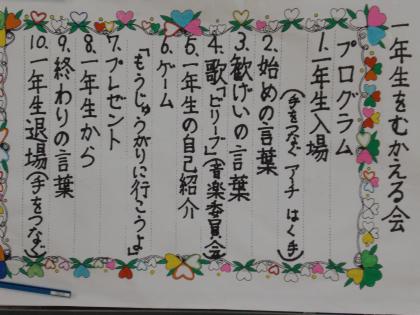 一年生をむかえる会
プログラム
1.一年生入場
(手をつなぐ アーチ はく手)
2.始めの言葉
3.歓げいの言葉
4.歌「ビリーブ」(音楽委員会)
5.一年生の自己紹介
6.ゲーム
「もうじゅうがりに行こうよ」
7.プレゼント
8.一年生から
9.終わりの言葉
10.一年生退場(手をつなぐ)